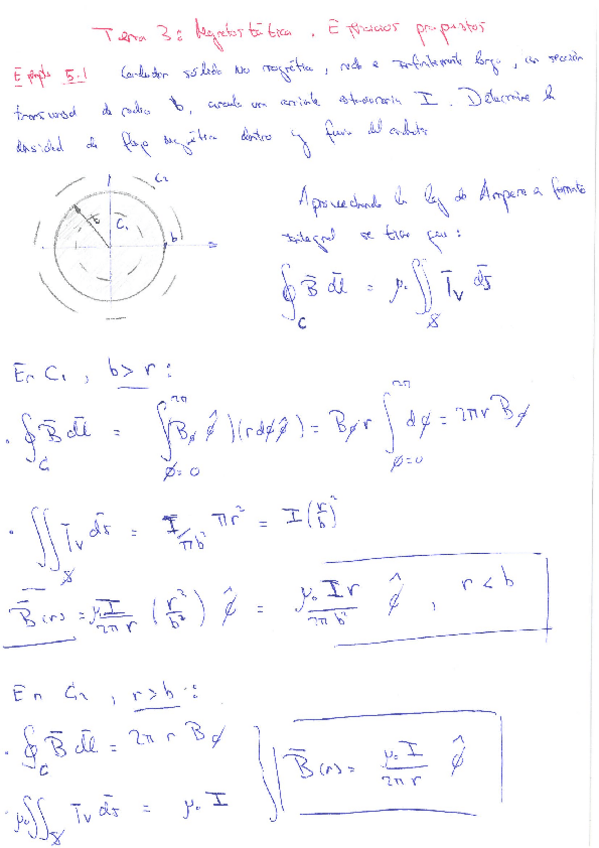 Tema 3: Magnetostática. Ejercicios propuestos
Ejemplo 5.1 Conductor sólido no magnético, recto e infinitamente largo, con sección
transversal de radio b, circula una corriente estacionaria I. Determine la
densidad de flujo magnético dentro y fuera del conductor
C₂
r
C̄₁
b
Aprovechando la ley de Ampere a formato
integral se tiene que:
∮_C B̄ dl̄ = μ₀ ∬_S J̄_V ds̄
En C₁, b > r:
· ∮_C₁ B̄ dl̄ = ∫_{φ=0}^{2π} (B_φ φ̂)(r dφ φ̂) = B_φ r ∫_{φ=0}^{2π} dφ = 2πr B_φ
· ∬_S J̄_V ds̄ = I/πb² πr² = I(r/b)²
B̄(r) = μ₀I/2πr (r²/b²) φ̂ = μ₀Ir/2πb² φ̂, r < b
En C₂, r > b:
· ∮_C B̄ dl̄ = 2π r B_φ
· μ₀∬_S J̄_V ds̄ = μ₀ I
B̄(r) = μ₀I/2πr φ̂